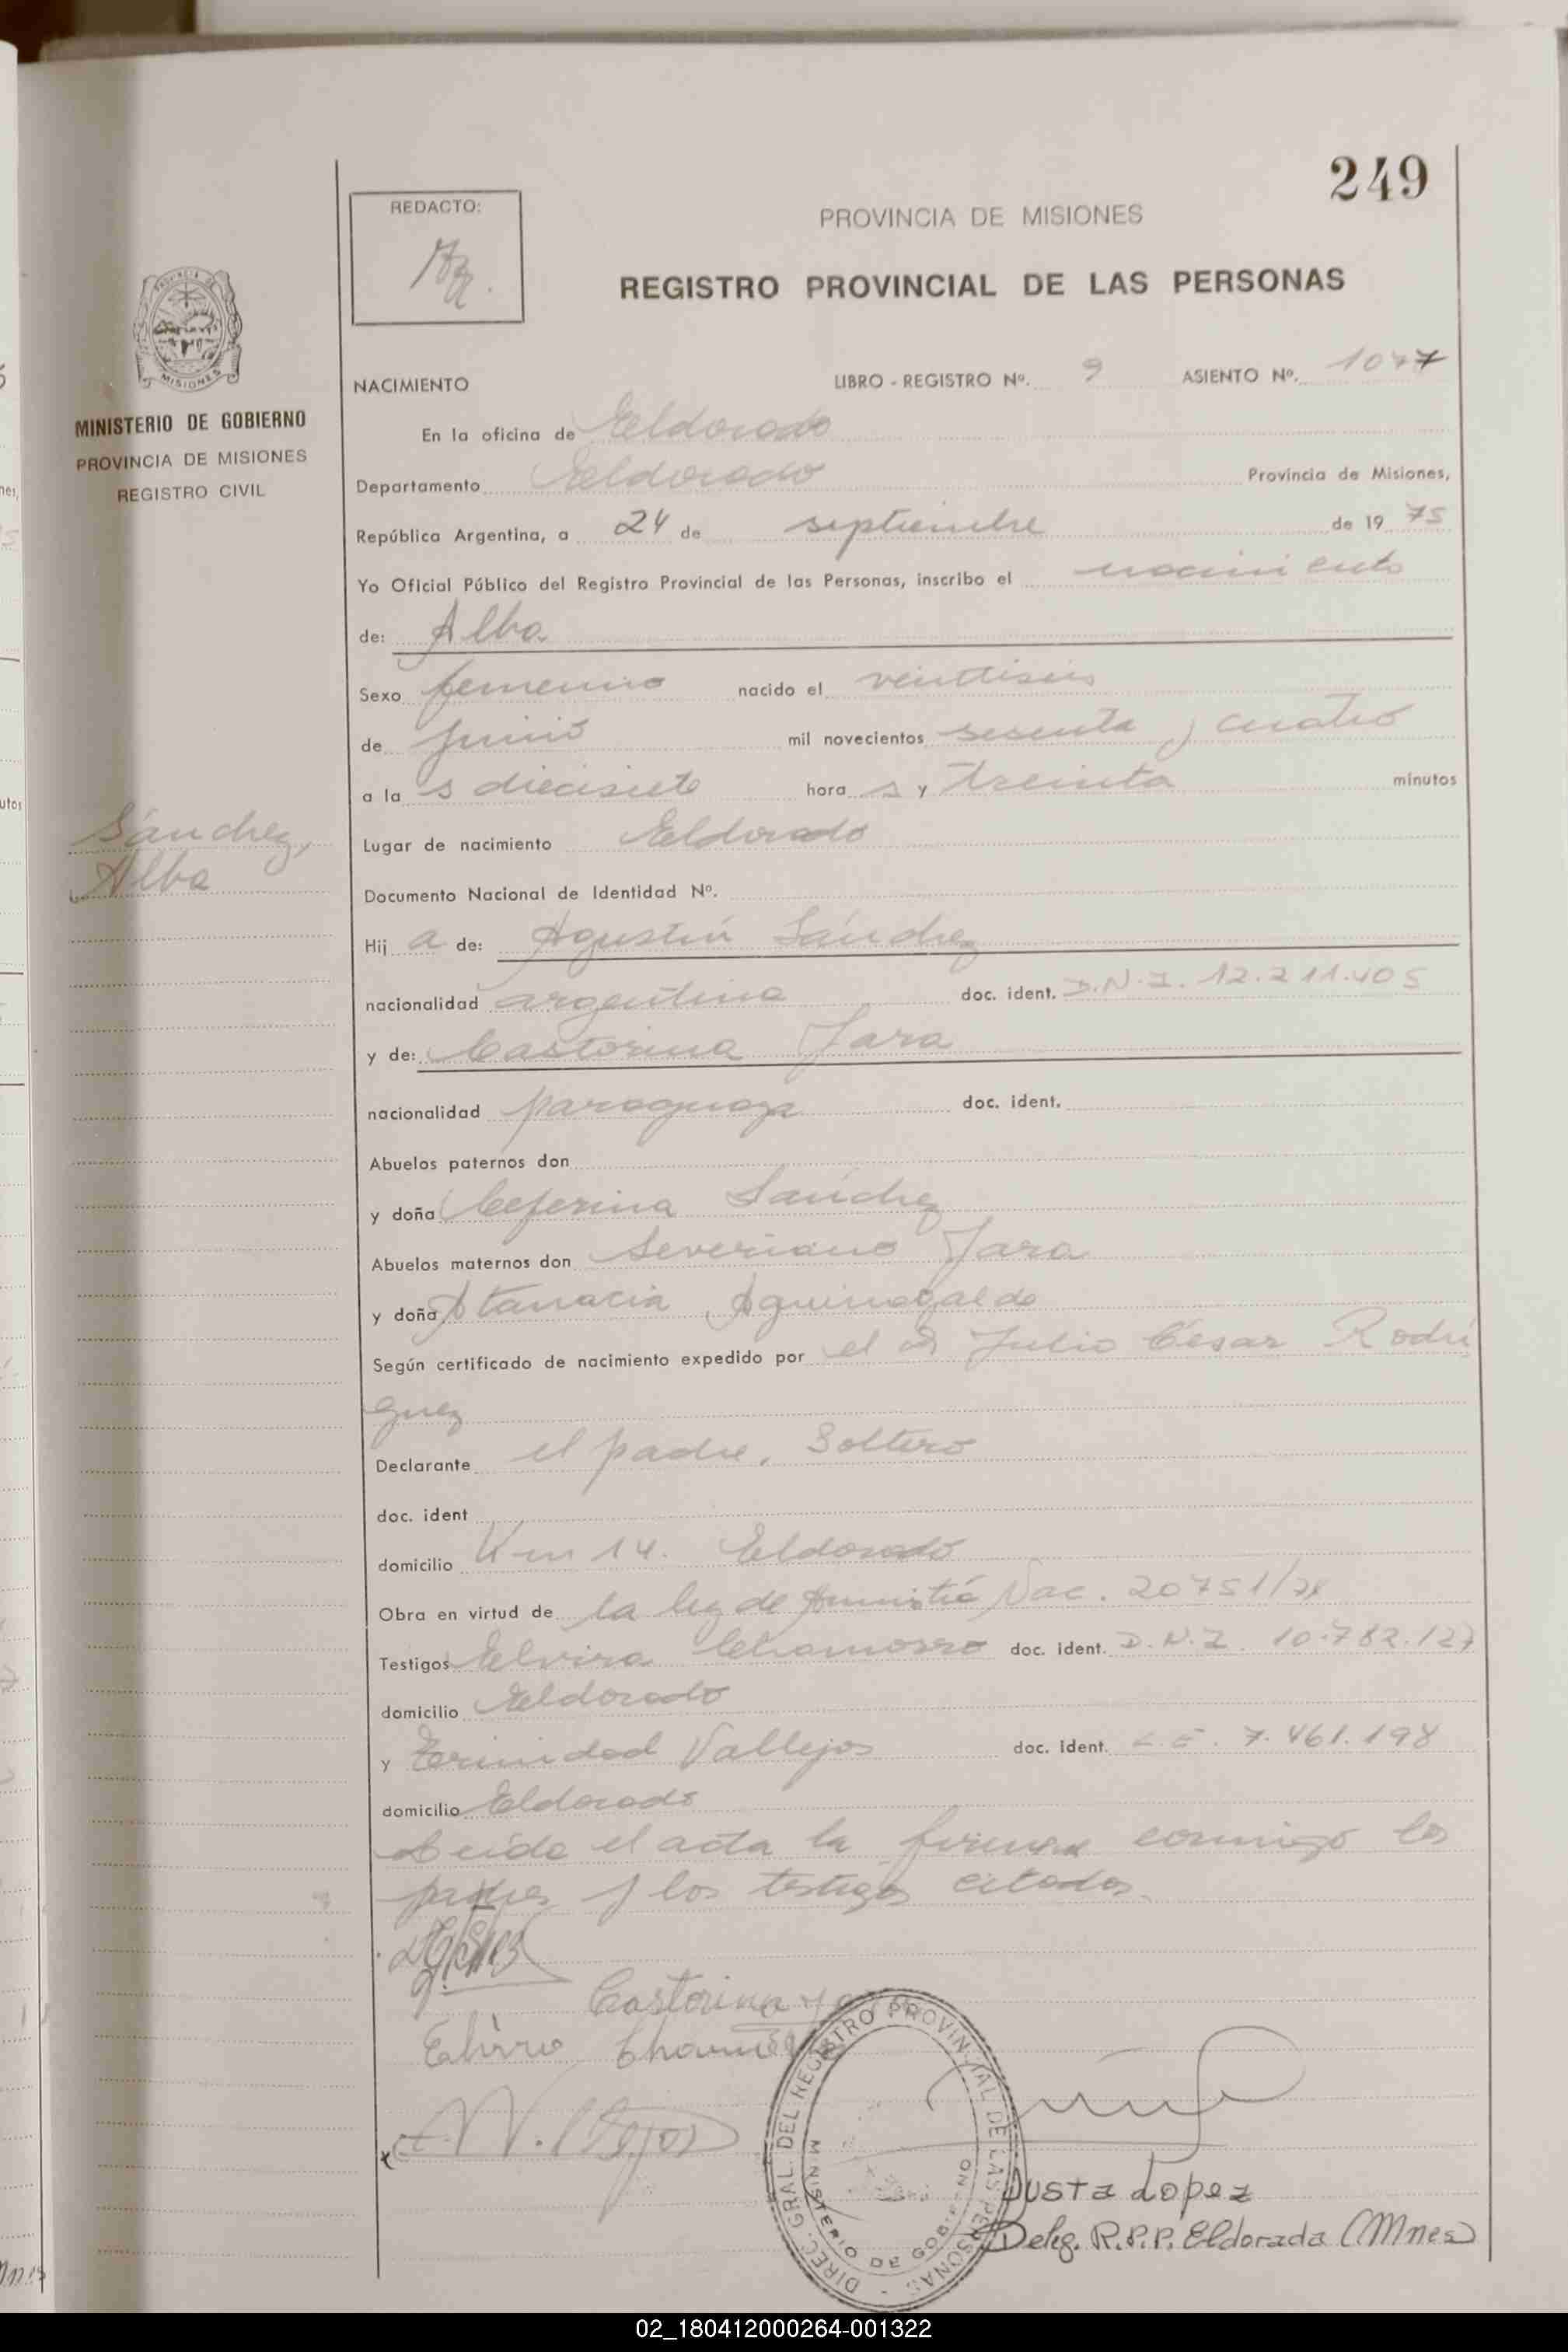 249
REDACTO:
PROVINCIA DE MISIONES
REGISTRO PROVINCIAL DE LAS PERSONAS
MISIONES
MINISTERIO DE GOBIERNO
PROVINCIA DE MISIONES
REGISTRO CIVIL
NACIMIENTO LIBRO - REGISTRO Nº. 9 ASIENTO Nº. 1077
En la oficina de Eldorado
Departamento Eldorado Provincia de Misiones,
República Argentina, a 24 de septiembre de 19 75
Yo Oficial Público del Registro Provincial de las Personas, inscribo el nacimiento
de: Alba
Sexo femenino nacido el veintiseis
de junio mil novecientos sesenta y cuatro
a la s diecisiete hora s y treinta minutos
Sánchez,
Alba
Lugar de nacimiento Eldorado
Documento Nacional de Identidad Nº.
Hij a de: Agustín Sánchez
nacionalidad argentina doc. ident. D.N.I. 12.211.405
y de: Castorina Jara
nacionalidad paraguaya doc. ident.
Abuelos paternos don
y doña Ceferina Sánchez
Abuelos maternos don Severiano Jara
y doña Atanacia Aguinagalde
Según certificado de nacimiento expedido por el Dr Julio César Rodrí
guez
Declarante el padre, Soltero
doc. ident
domicilio Km 14. Eldorado
Obra en virtud de la ley de Amnistía Nac. 20751/
Testigos Elvira Chamorro doc. ident. D.N.I. 10.782.127
domicilio Eldorado
y Trinidad Vallejos doc. ident. L.E. 7.461.198
domicilio Eldorado
Leída el acta la firman conmigo los
padres y los testigos citados.
Castorina
Elvira
DIREC. GRAL. DEL REGISTRO PROVINCIAL DE LAS PERSONAS -
MINISTERIO DE GOBIERNO
Justa Lopez
Deleg. R.P.P. Eldorada (Mnes)
02_180412000264-001322